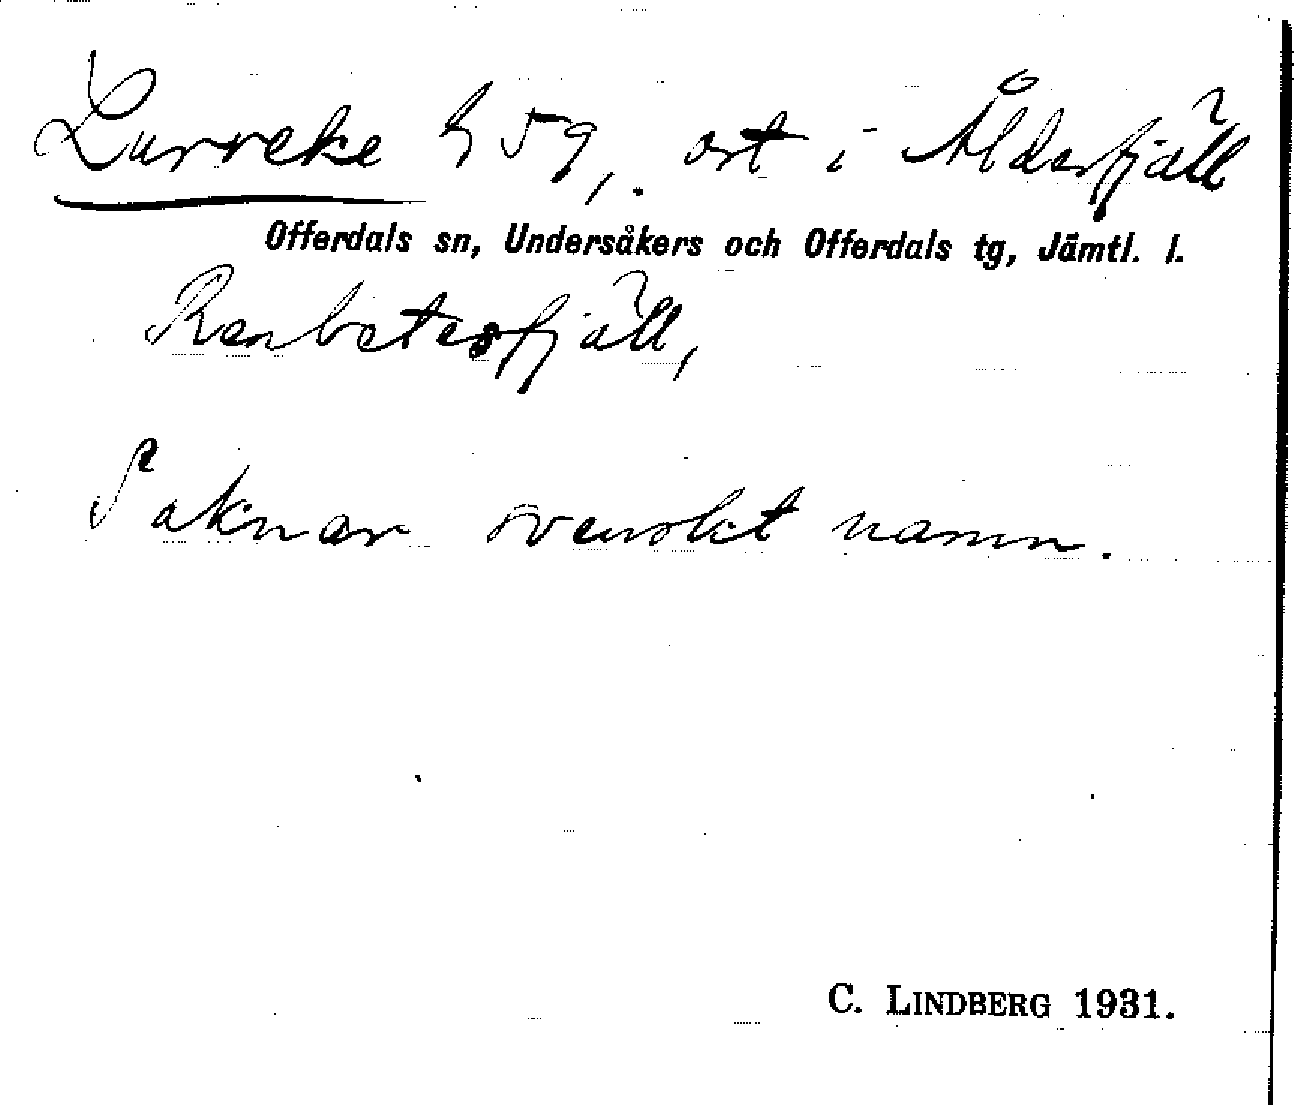 Lurreke h 59, ort i Ålderfjäll
Offerdals sn, Undersåkers och Offerdals tg, Jämtl. l.
Renbetesfjäll,
Saknar svenskt namn.
C. LINDBERG 1931.